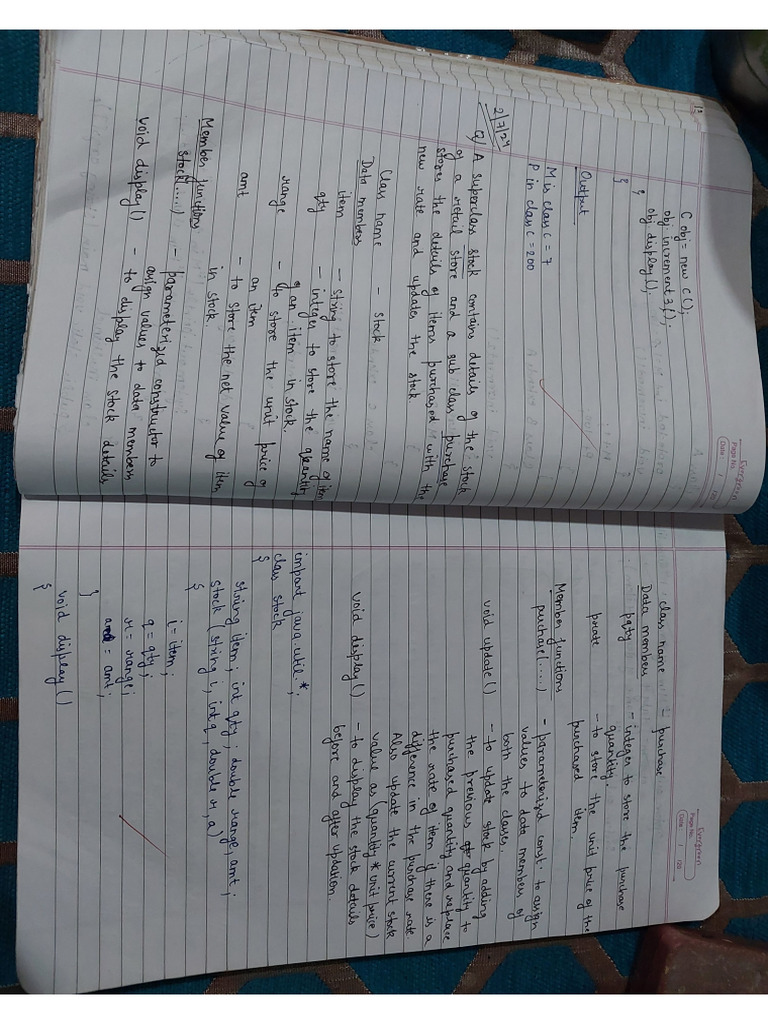 12
Evergreen
Page No.
Date / /20
C obj = new C();
obj increment 3();
obj display();
}
}
Output
M is class C = 7
P in class C = 200
2/7/24
Q/ A superclass stock contains details of the stock
of a retail store and a sub class purchase
stores the details of items purchased with the
new rate and updates the stock.
Class name - stock
Data members
item - string to store the name of item
qty - integer to store the quantity
of an item in stock.
range - to store the unit price of
an item
amt - to store the net value of item
in stock.
Member functions
stock(.....) - parameterized constructor to
assign values to data members
void display() - to display the stock details
Evergreen
Page No.
Date / /20
class name - purchase
Data members
pqty - integer to store the purchase
quantity.
prate - to store the unit price of the
purchased item.
Member functions
purchase(.....) - parameterized const. to assign
values to data members of
both the classes.
void update() - to update stock by adding
the previous quantity to
purchased quantity and replace
the rate of item if there is a
difference in the purchase rate.
Also update the current stock
value as (quantity * unit price)
void display() - to display the stock details
before and after updation.
import java.util.*;
class stock
{
string item; int qty; double range, amt;
stock (string i, int q, double r, a)
{
i = item;
q = qty;
r = range;
a = amt;
}
void display()
{